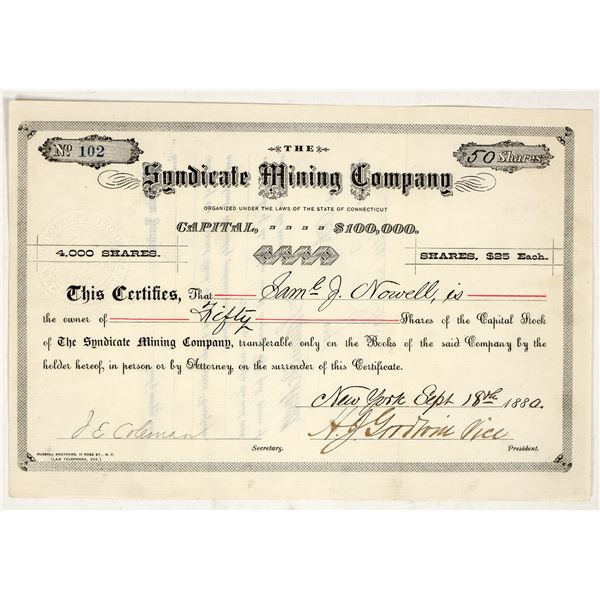 No 102
THE
50 Shares
Syndicate Mining Company
ORGANIZED UNDER THE LAWS OF THE STATE OF CONNECTICUT
CAPITAL, $100,000.
4,000 SHARES.
SHARES, $25 Each.
This Certifies, That Saml J. Nowell, is
the owner of Fifty Shares of the Capital Stock
of The Syndicate Mining Company, transferable only on the Books of the said Company by the
holder hereof, in person or by Attorney, on the surrender of this Certificate.
New York Sept 18th 1880.
J E Coleman
A. J. Goodwin Vice
Secretary.
President.
RUSSELL BROTHERS, 17 ROSE ST., N. Y.
(LAW TELEPHONE, 202.)